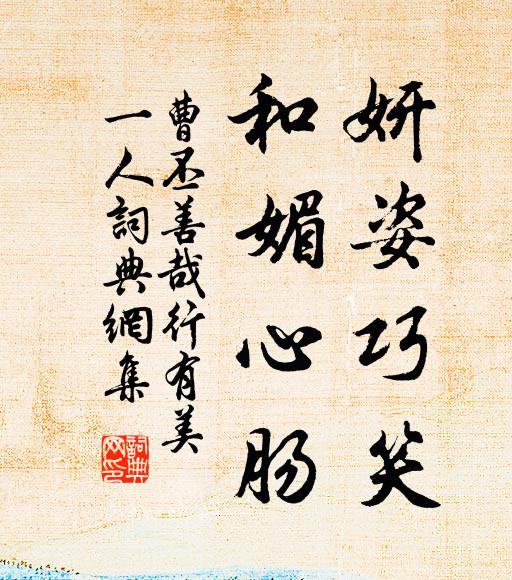 妍姿巧笑
和媚心肠
曹丕善哉行有美
一人詞典網集
詞典